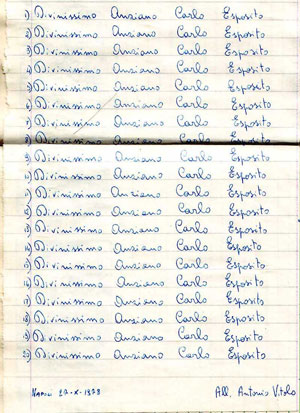 1) Divinissimo Anziano Carlo Esposito
2) Divinissimo Anziano Carlo Esposito
3) Divinissimo Anziano Carlo Esposito
4) Divinissimo Anziano Carlo Esposito
5) Divinissimo Anziano Carlo Esposito
6) Divinissimo Anziano Carlo Esposito
7) Divinissimo Anziano Carlo Esposito
8) Divinissimo Anziano Carlo Esposito
9) Divinissimo Anziano Carlo Esposito
10) Divinissimo Anziano Carlo Esposito
11) Divinissimo Anziano Carlo Esposito
12) Divinissimo Anziano Carlo Esposito
13) Divinissimo Anziano Carlo Esposito
14) Divinissimo Anziano Carlo Esposito
15) Divinissimo Anziano Carlo Esposito
16) Divinissimo Anziano Carlo Esposito
17) Divinissimo Anziano Carlo Esposito
18) Divinissimo Anziano Carlo Esposito
19) Divinissimo Anziano Carlo Esposito
20) Divinissimo Anziano Carlo Esposito
Napoli 27-X-1978 All. Antonio Vitolo